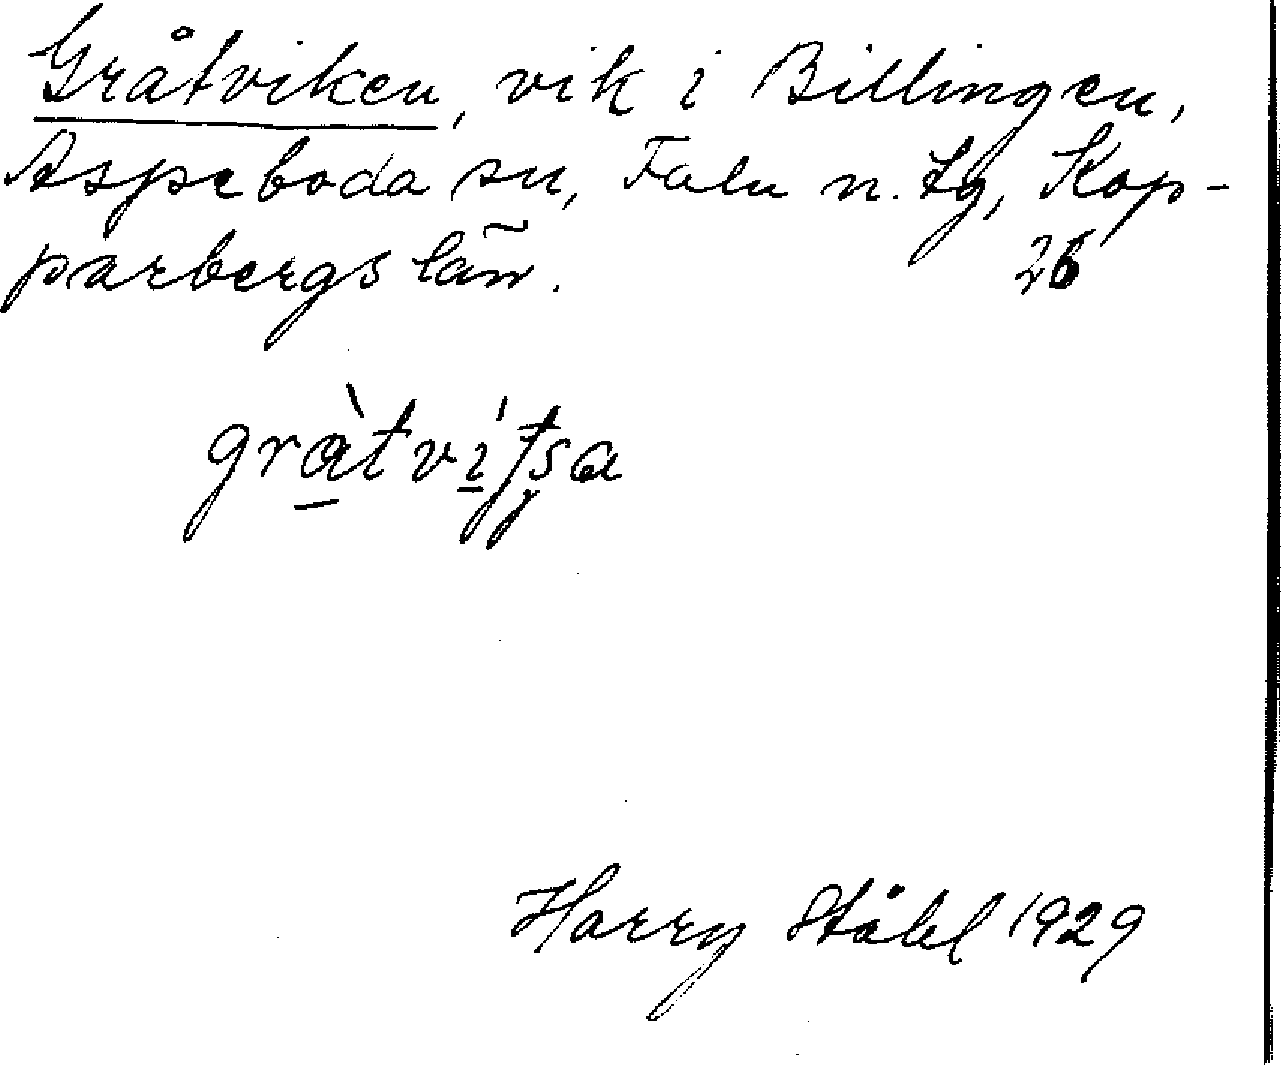 Gråtviken, vik i Billingen,
Aspeboda sn, Falu n. tg, Kop-
parbergs län. 26
Harry Ståhl 1929